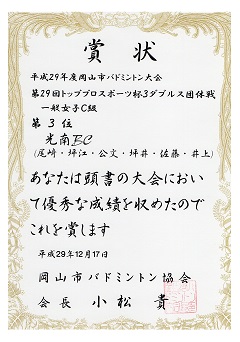 賞状
平成29年度岡山市バドミントン大会
第29回トッププロスポーツ杯3ダブルス団体戦
一般女子C級
第3位
光南BC
(尾崎・坪江・公文・坪井・佐藤・井上)
あなたは頭書の大会におい
て優秀な成績を収めたので
これを賞します
平成29年12月17日
岡山市バドミントン協会
会長 小松 貴